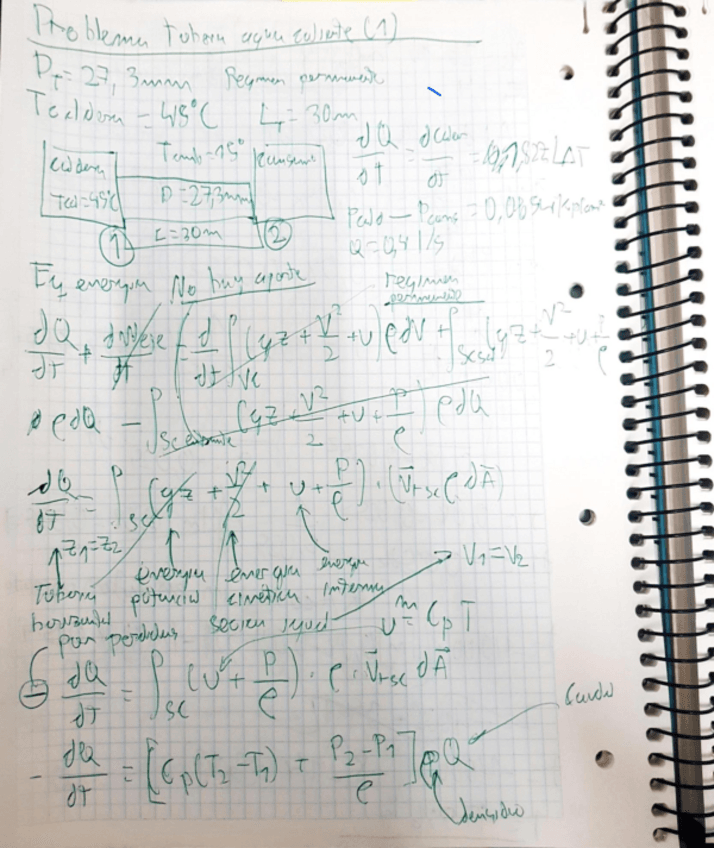 Problema tubería agua caliente (1)
D_T = 27,3mm Regimen permanente
T caldera = 45°C L_T = 30m
caldera
Tcal=45°C
Tamb=15°
D=27,3mm
L=30m
1
2
dQ/dt = dcalor/dt = 0,1522 L ΔT
Pcald - Pcons = 0,08
Q = 0,4 l/s
Eq energia No hay aporte regimen permanente
dQ/dt + dWeje/dt = d/dt ∫VC (gz + V²/2 + u) ρ dV + ∫SCsal (gz + V²/2 + u + P/ρ
ρdQ - ∫SC entrante (gz + V²/2 + u + P/ρ) ρdQ
dQ/dt = ∫SC (gz + V²/2 + u + P/ρ) · (V⃗rsc ρ dA⃗)
z1=z2
Tuberia horizontal
energia potencial
energia cinética
energia interna
V1=V2
seccion igual
u = Cp T
por perdidas
⊖ dQ/dt = ∫SC (u + P/ρ) · ρ · V⃗rsc dA⃗
- dQ/dt = [Cp(T2-T1) + (P2-P1)/ρ] ρQ
Caudal
densidad